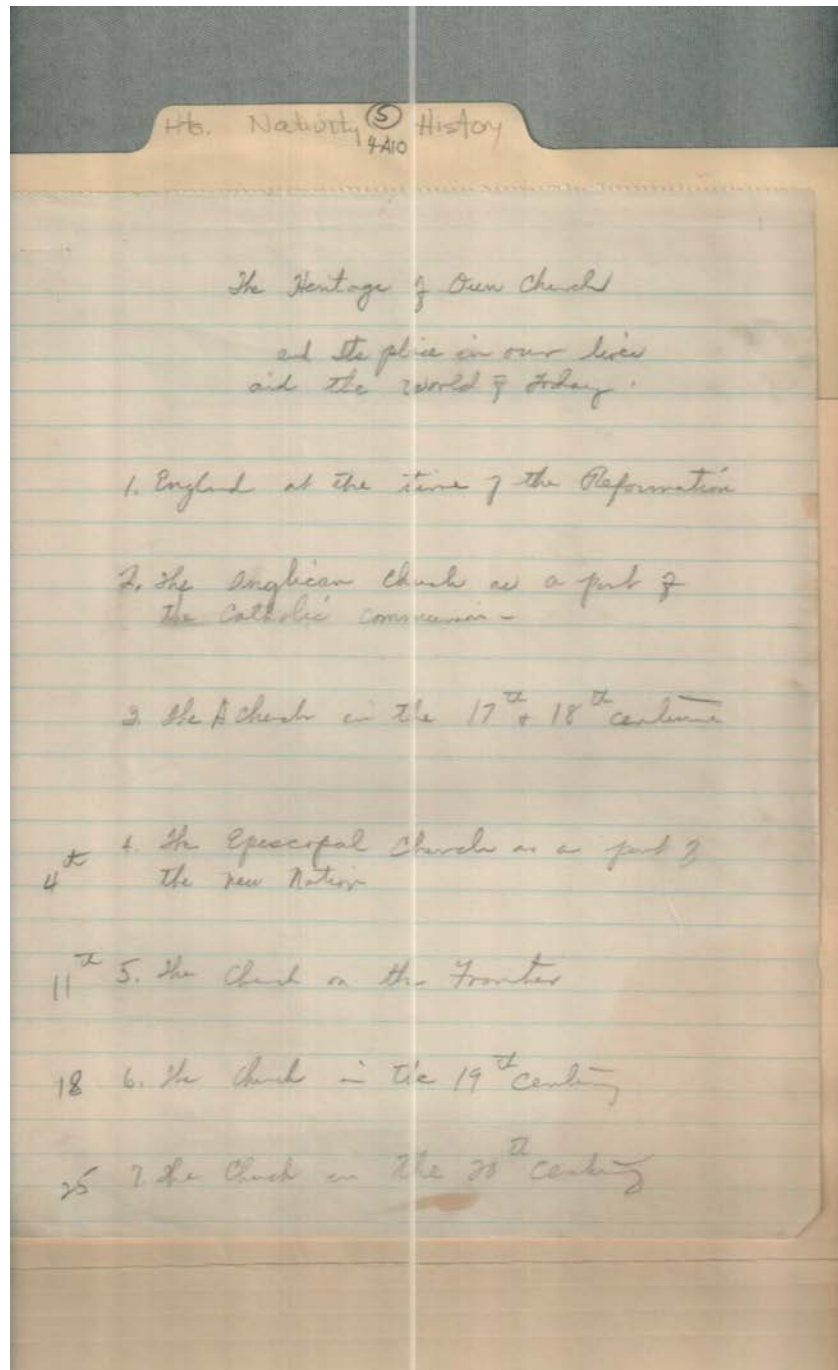 Hb. Nativity History
5
4A10
The Heritage of Our Church
and Its place in our lives
and the World of Today.
1. England at the time of the Reformation
2. The Anglican Church as a part of
the Catholic Communion -
3. The A Church in the 17th & 18th centuries
4. The Episcopal Church as a part of
4th the new Nation
11th 5. The Church on the Frontier
18 6. The Church in the 19th Century
25 7. The Church in the 20th Century